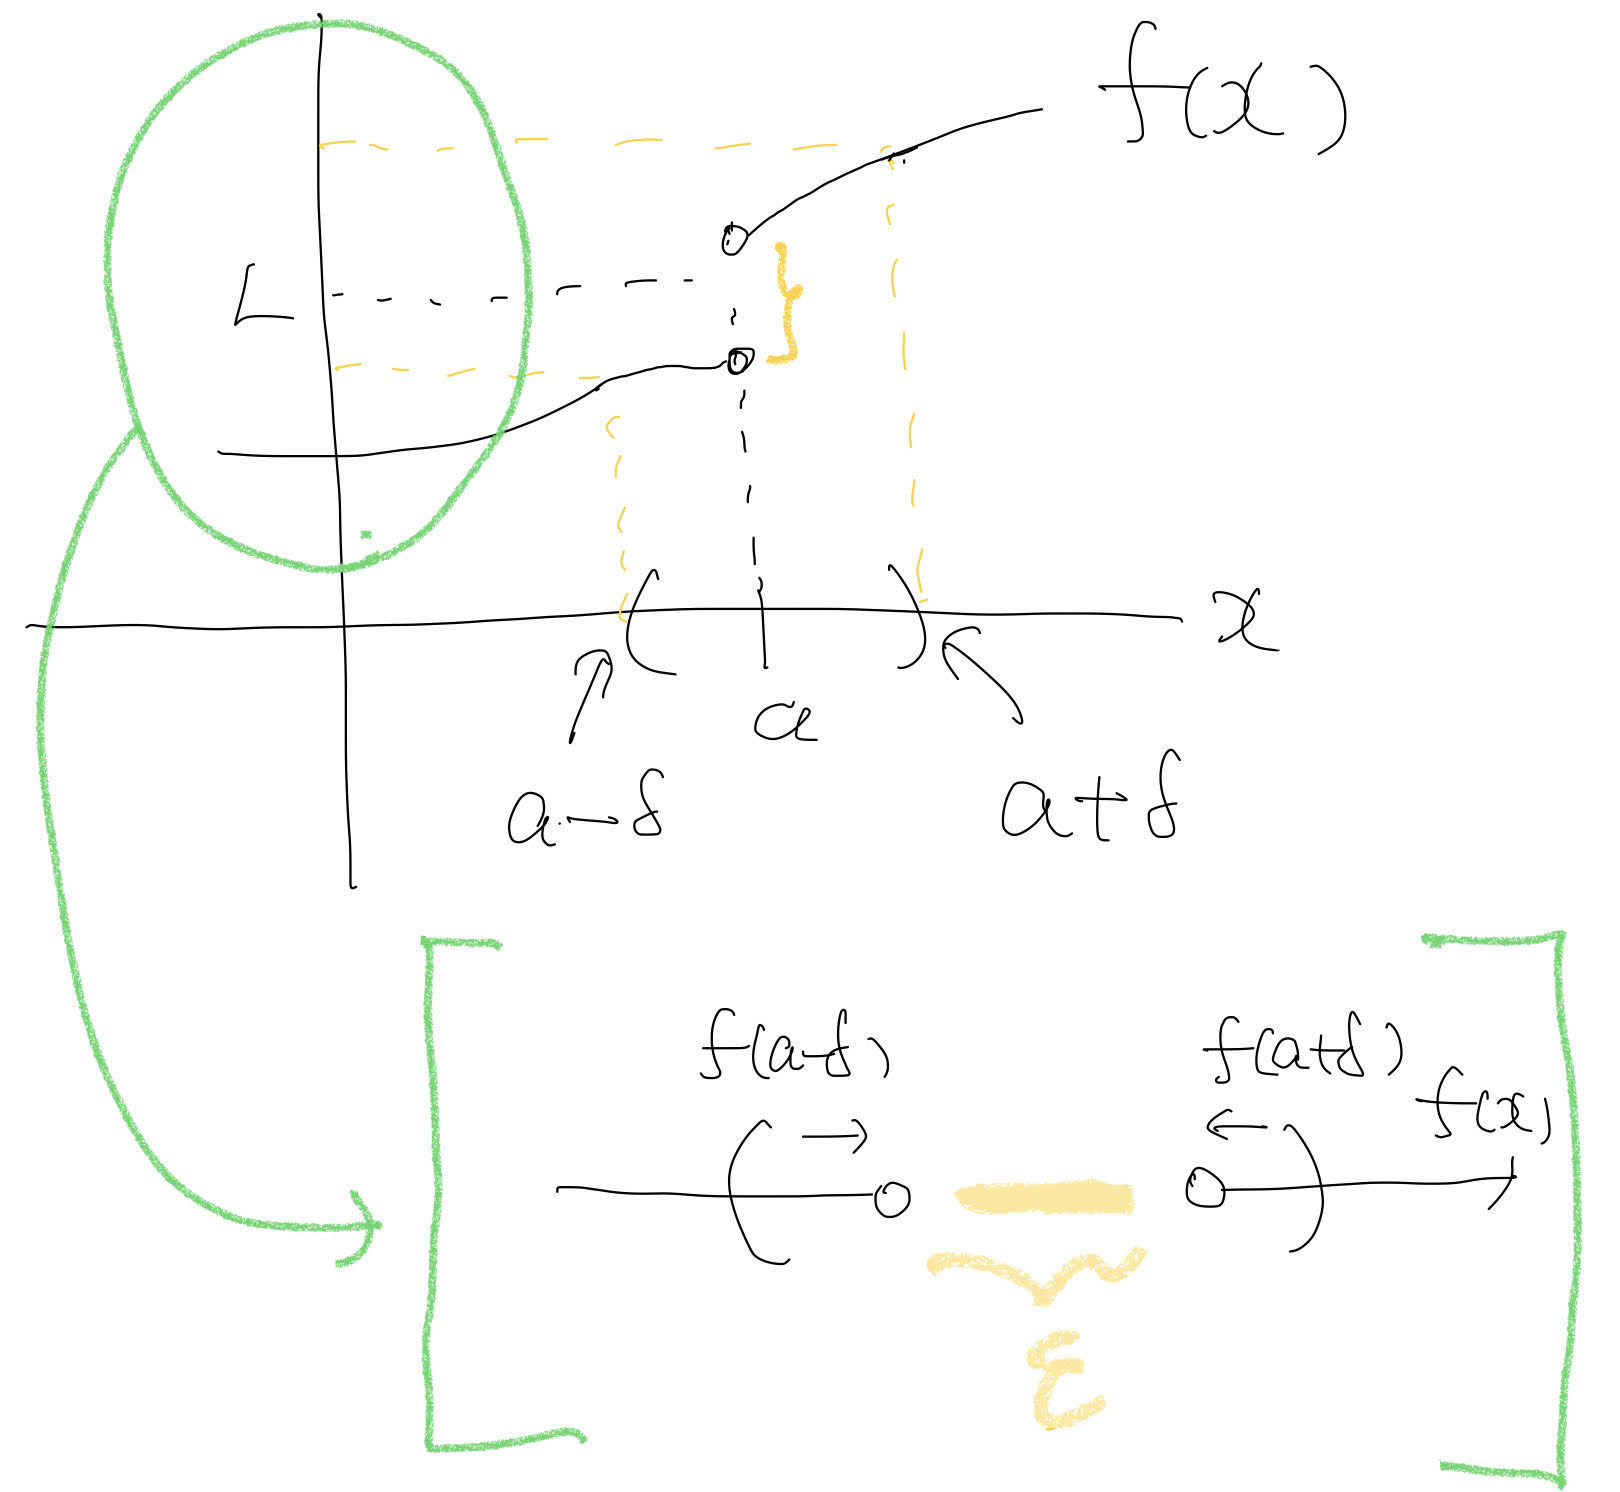 f(x)
L
x
a
a-δ
a+δ
f(a-δ)
f(a+δ)
f(x)
ε